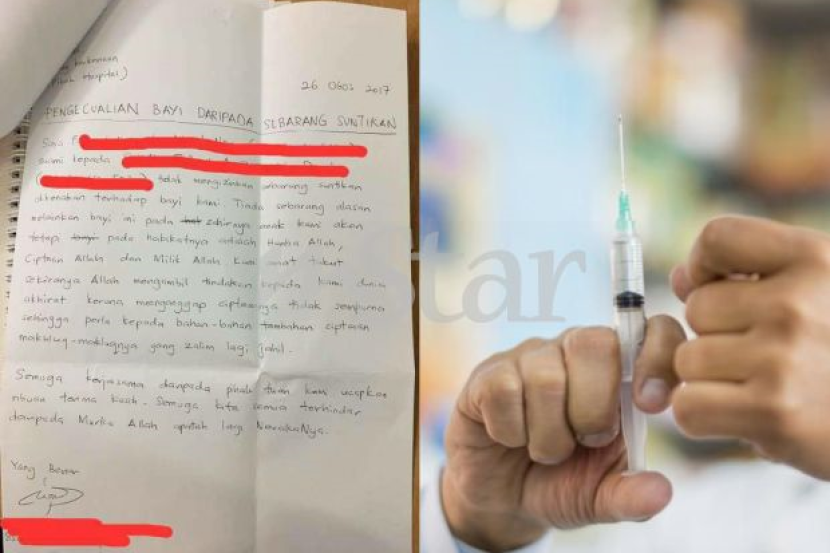 (Pihak Hospital)
26 OGOS 2017
PENGECUALIAN BAYI DARIPADA SEBARANG SUNTIKAN
Saya
suami kepada
tidak mengizinkan sebarang suntikan
dikenakan terhadap bayi kami. Tiada sebarang alasan
melainkan bayi ini pada zahirnya anak kami akan
tetapi pada hakikatnya adalah Hamba Allah,
Ciptaan Allah dan Milik Allah. Kami amat takut
sekiranya Allah mengambil tindakan kepada kami dunia
akhirat kerana menganggap ciptaannya tidak sempurna
sehingga perlu kepada bahan-bahan tambahan ciptaan
makluq-makluqnya yang zalim lagi jahil.
Semoga kerjasama daripada pihak tuan kami ucapkan
ribuan terima kasih. Semoga kita semua terhindar
daripada Murka Allah apatah lagi NerakaNya.
Yang Benar
Star